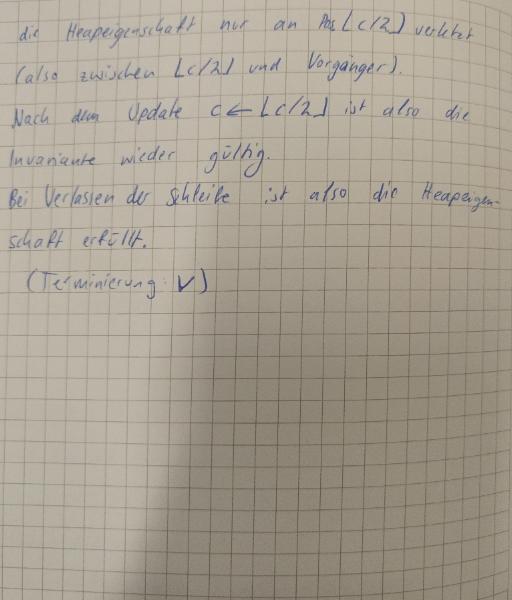 die Heapeigenschaft nur an Pos ⌊c/2⌋ verletzt
(also zwischen ⌊c/2⌋ und Vorgänger).
Nach dem Update c ← ⌊c/2⌋ ist also die
Invariante wieder gültig.
Bei Verlassen der Schleife ist also die Heapeigen-
schaft erfüllt.
(Terminierung: ✓)